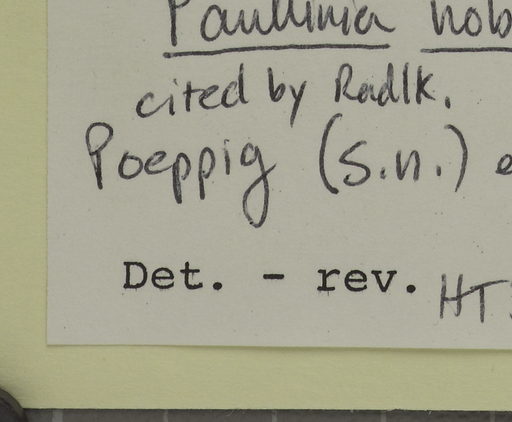 Paullinia nob
cited by Radlk.
Poeppig (s.n.) e
Det. - rev. HT